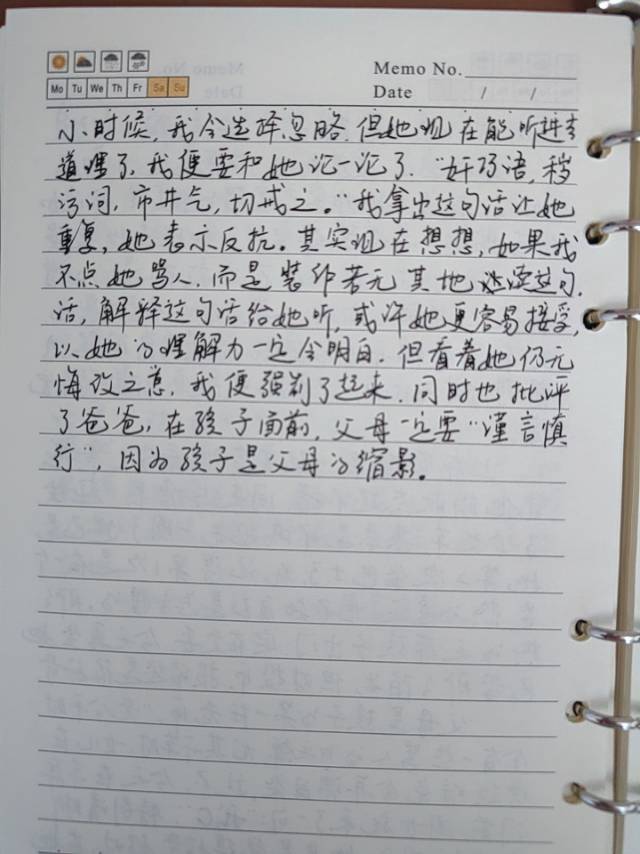 Memo No.
Mo Tu We Th Fr Sa Su
Date / /
小时候,我会选择忽略.但她现在能听进去
道理了,我便要和她论一论了."奸巧语,秽
污词,市井气,切戒之。"我拿出这句话让她
重复,她表示反抗。其实现在想想,如果我
不点她骂人.而是装作若无其地读这句.
话,解释这句话给她听,或许她更容易接受,
以她的理解力一定会明白.但看着她仍无
悔改之意,我便强制了起来.同时也批评
了爸爸,在孩子面前,父母一定要"谨言慎
行",因为孩子是父母的缩影。